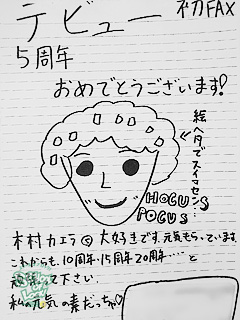 デビュー 初FAX
5周年
おめでとうございます!
絵ヘタでスイマセン
HOCUS
POCUS
木村カエラ 大好きです。元気もらっています。
これからも、10周年・15周年 20周年・・・・と
頑張って下さい
私の元気の素だっちゃ